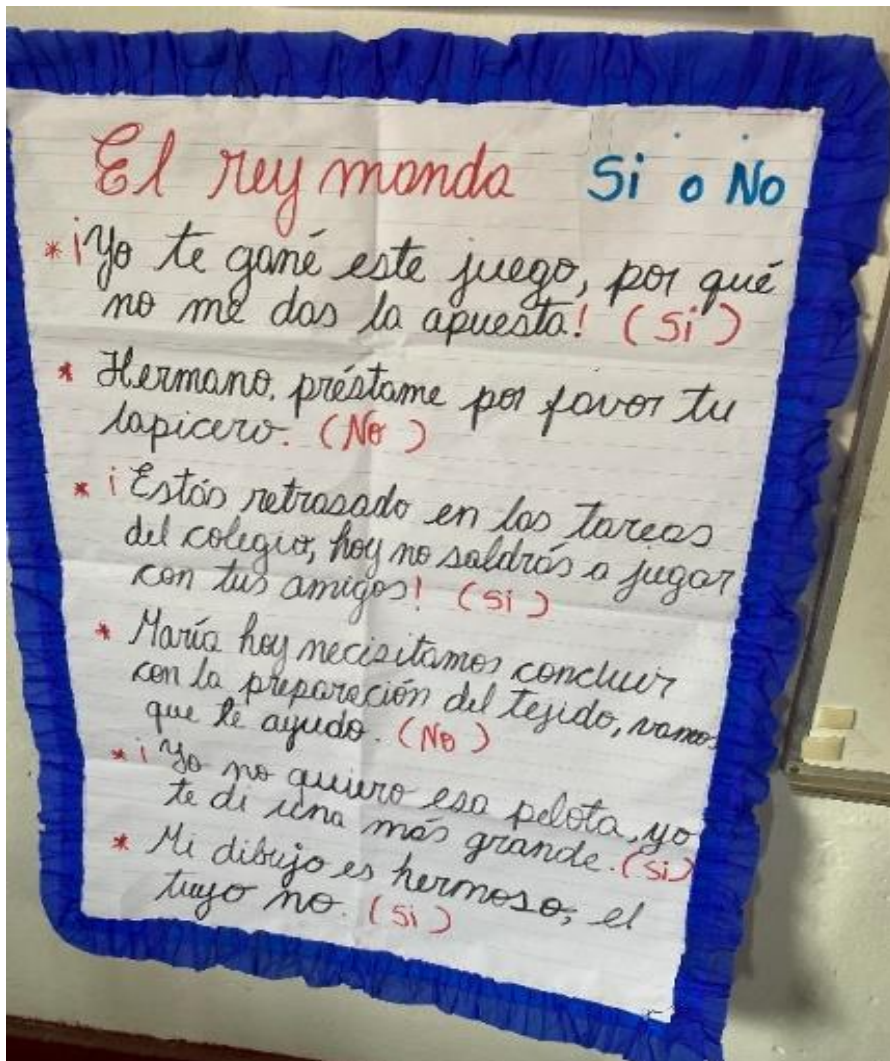 El rey manda Si o No
* ¡Yo te gané este juego, por qué
no me das la apuesta! (Si)
* Hermano, préstame por favor tu
lapicero. (No)
* ¡Estás retrasado en las tareas
del colegio, hoy no saldrás a jugar
con tus amigos! (Si)
* María hoy necisitamos concluir
con la preparación del tejido, vamos
que te ayudo. (No)
* ¡Yo no quiero esa pelota, yo
te di una más grande. (Si)
* Mi dibujo es hermoso, el
tuyo no. (Si)